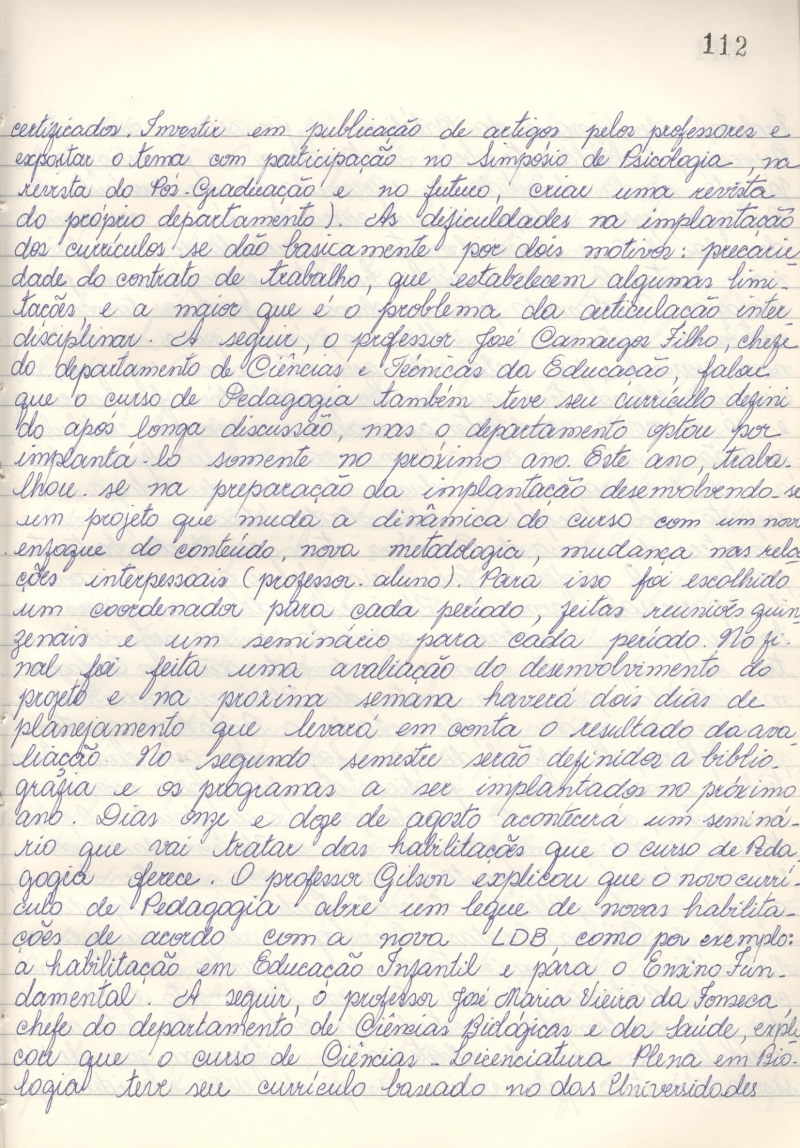 112
certificados. Investir em publicação de artigos pelos professores e
expostar o tema com participação no Simpósio de Psicologia, na
revista do Pós-Graduação e no futuro, criar uma revista
do próprio departamento). As dificuldades na implantação
dos currículos se dão basicamente por dois motivos: precarie
dade do contrato de trabalho, que estabelecem algumas limi-
tações, e a maior que é o problema da articulação inter
disciplinar. A seguir, o professor José Camargos Filho, chefe
do departamento de Ciências e Técnicas da Educação, falou
que o curso de Pedagogia também teve seu currículo defini
do após longa discussão, mas o departamento optou por
implantá-lo somente no próximo ano. Este ano, traba-
lhou-se na preparação da implantação desenvolvendo-se
um projeto que muda a dinâmica do curso com um novo
enfoque do conteúdo, nova metodologia, mudança nas rela
ções interpessoais (professor-aluno). Para isso foi escolhido
um coordenador para cada período, feitas reuniões quin
zenais e um seminário para cada período. No fi-
nal foi feita uma avaliação do desenvolvimento do
projeto e na próxima semana haverá dois dias de
planejamento que levará em conta o resultado da ava
liação. No segundo semestre serão definidos a biblio-
grafia e os programas a ser implantados no próximo
ano. Dias onze e doze de agosto acontecerá um seminá-
rio que vai tratar das habilitações que o curso de Peda-
gogia oferece. O professor Gilson explicou que o novo currí-
culo de Pedagogia abre um leque de novas habilita-
ções de acordo com a nova LDB, como por exemplo:
a habilitação em Educação Infantil e para o Ensino Fun-
damental. A seguir, o professor José Maria Vieira da Fonseca,
chefe do departamento de Ciências Biológicas e da Saúde, expli
cou que o curso de Ciências - Licenciatura Plena em Bio-
logia teve seu currículo baseado no das Universidades